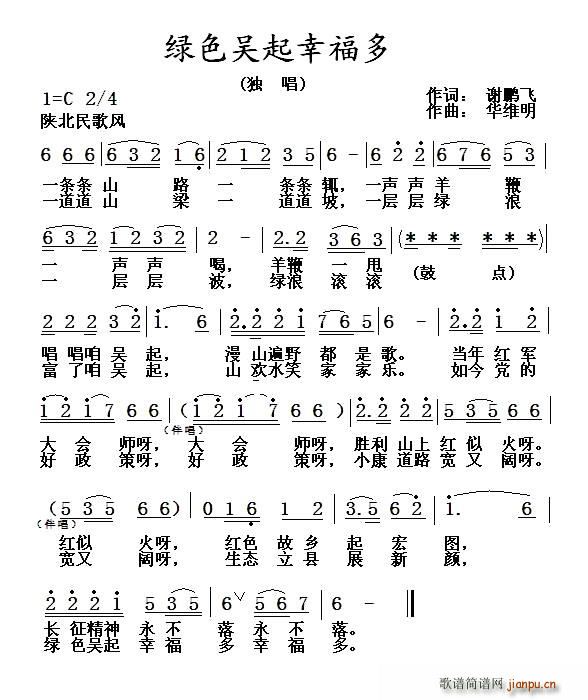 绿色吴起幸福多
(独 唱)
1=C 2/4
作词: 谢鹏飞
陕北民歌风
作曲: 华维明
6 6 6 | 6 3 2 1 6 | 2 1 2 3 5 | 6 - | 6 2 2 | 6 7 6 5 3 |
一条条 山 路 一 条条 辄, 一声声 羊 鞭
一道道 山 梁 一 道道 坡, 一层层 绿 浪
6 3 2 | 1 2 3 2 | 2 - | 2.2 | 3 6 3 | (* * * * * *) |
一 声声 喝, 羊鞭 一 甩 (鼓 点)
一 层层 波, 绿浪 滚 滚
2 2 2 2 3 2 | 1. 6 | 2.2 2 1 | 6 5 3 5 | 6 - | 2.2 1 2 |
唱 唱咱 吴 起, 漫 山遍野 都 是 歌。 当年 红 军
富 了咱 吴 起, 山 欢水笑 家 家 乐。 如今 党 的
1 2 1 7 6 6 | (1 2 1 7 6 6) | 2.2 2 2 | 5 3 5 6 6 |
大 会 师呀, (伴唱) 大 会 师呀, 胜利 山上 红 似 火呀。
好 政 策呀, 好 政 策呀, 小康 道路 宽 又 阔呀。
(5 3 5 6 6) | 0 1 6 1 2 | 3. 5 6 2 | 1. 6 |
(伴唱) 红似 火呀, 红色 故 乡 起 宏 图,
宽又 阔呀, 生态 立 县 展 新 颜,
2 2 2 1 | 5 3 5 | 6 ∨ 6 | 5 3 5 | 6 - ‖
长 征精神 永 不 落 永 不 落。
绿 色吴起 幸 福 多 幸 福 多。
歌谱简谱网
jianpu.cn